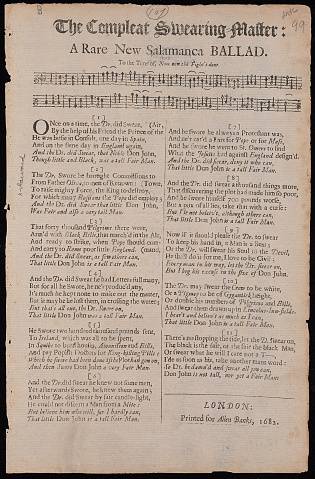 The Compleat Swearing-Master:
A Rare New Salamanca BALLAD.
To the Tune of, Now now the Fight's done
99
[1]
ONce on a time, the Dr. did Swear, (Air,
By the help of his Friend the Prince of the
He was here in Consult, one day in Spain,
And on the same day in England again.
And the Dr. did Swear, that Noble Don John,
Though little and Black, was a tall Fair Man.
[2]
The Dr. Swore he brought Commissions to
From Father Oliva, to men of Renown: (Town,
To raise mighty Force, the King to dethrone,
For which many Reasons the Pope did employ;
And the Dr. did Swear that little Don John,
Was Fair and also a very tall Man.
[3]
That forty thousand Pilgrims there were,
Arm'd with Black Bills, that march'd in the Air,
And ready to strike, when Pope should com-
And carry to Rome poor little England. (mand,
And the Dr. did Swear, as few others can,
That little Don John is a tall Fair Man.
[4]
And the Dr. did Swear he had Letters full many,
But for all he Swore, he ne'er produc'd any,
It's much he kept none to make out the matter,
But it may be he lost them, in crossing the water;
But that's all one, the Dr. Swore on,
That little Don John was a tall Fair Man.
[5]
He Swore two hundred thousand pounds sent,
To Ireland, which was all to be spent,
In Spanish Black Bills,
And pay Popish Doctors for King-killing Pills
And then Swore Don John a very Fair Man.
[6]
And the Dr. did swear he knew not some men,
Yet afterwards he Swore, he knew them again;
And the Dr. did Swear by fair candle-light,
He could not discern a Man from a Mite:
But believe him who will, for I hardly can,
That little Don John is a tall Fair Man.
[7]
And he Swore he always an Protestant was,
And ne'er car'd a Fart for Pope or for Mass,
And he swore he went to St. Omers to find
What the Jesuits had against England design'd.
And the Dr. did swear, deny it who can,
That little Don John is a tall Fair Man.
[8]
And the Dr. did Swear a thousand things more,
For discovering the plot had made him poor,
And he Swore himself 700 pounds worse,
But a pox of all lies, take that with a curse:
But I'le not believe't, although others can,
That little Don John is a tall Fair Man.
[9]
Now if it should please the Dr. to swear
To keep his hand in, a Man is a Bear;
Or the Dr. will swear his Soul to the Devil,
He shall do it for me, I love to be Civil:
Every man in his way, let the Dr. swear on,
But I beg his excuse in the case of Don John.
[10]
The Dr. may swear the Crow to be white,
Or a Pigmey to be of Gygantick height,
Or double the numbers of Pilgrims and Bills,
And swear them drawn up in
I hear't and believe't as much as I can,
That little Don John is a tall Fair Man.
[11]
There's no stopping the tide, let the D. swear on,
The black is the fair, or the fair the black Man,
Or swear what he will I care not a T--
He as soon as his, takes another mans word:
So Dr. be damn'd and swear all you can,
Don John is not tall, nor yet a Fair Man.
LONDON:
Printed for Allen Banks, 1682.